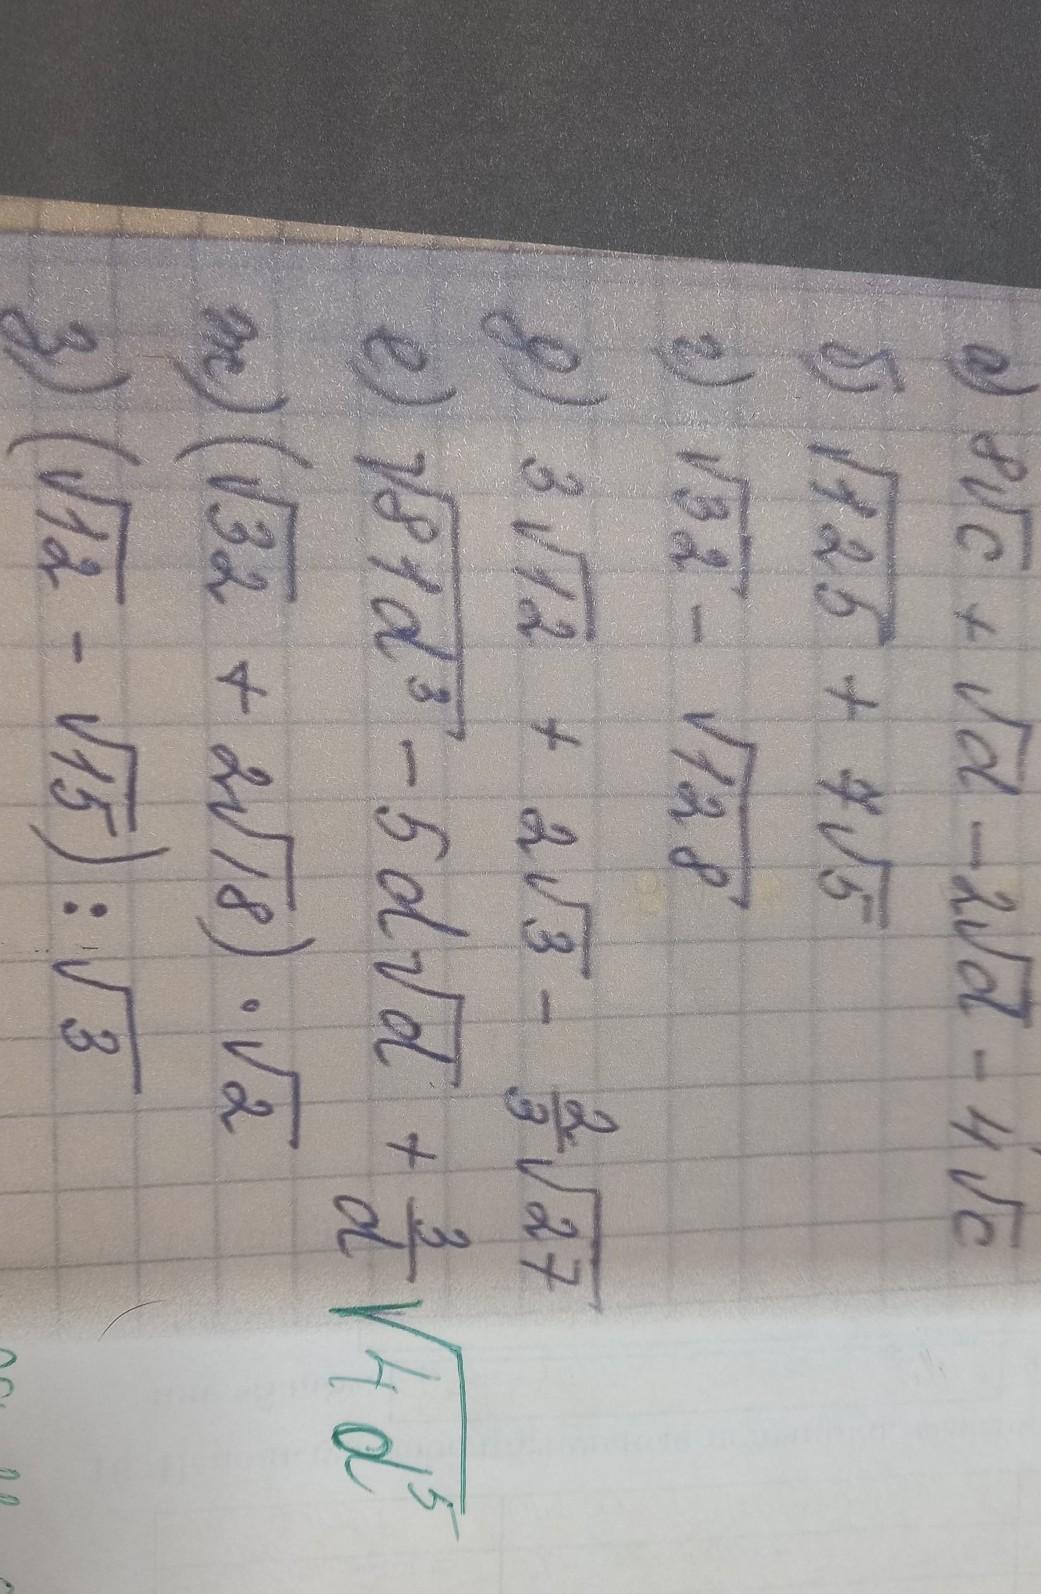 а) 8√c + √d - 2√d - 4√c
б) √125 + 4√5
г) √32 - √128
д) 3√12 + 2√3 - 2/3√27
е) √81d³ - 5d√d + 3/d √4d⁵
ж) (√32 + 2√18) · √2
з) (√12 - √15) : √3